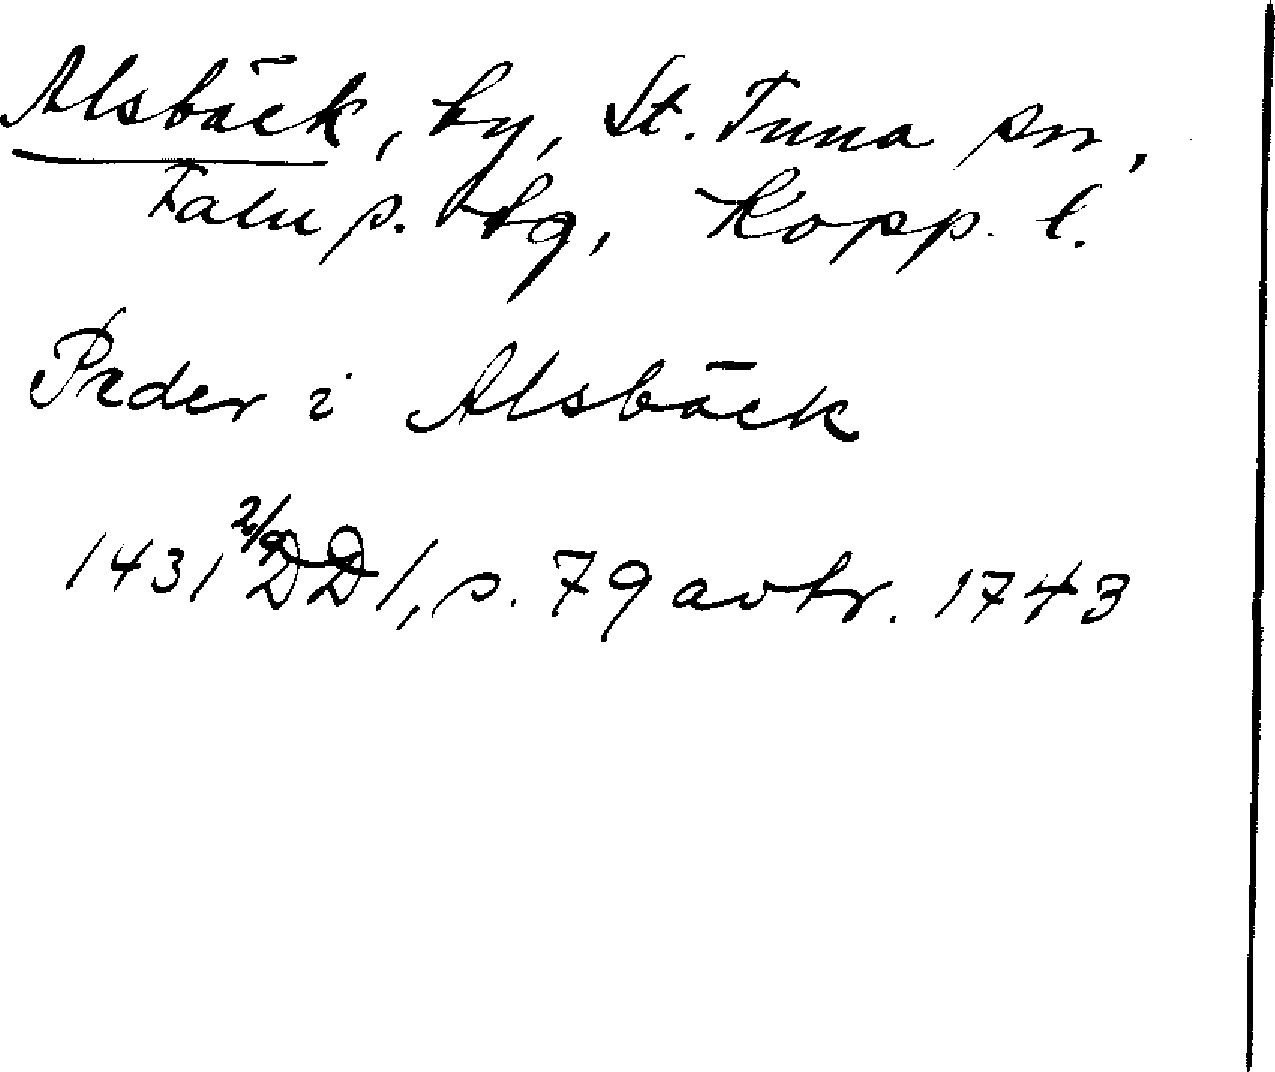 Alsbäck, by, St. Tuna sn,
Falu s. tg, Kopp. l.
Peder i Alsbäck
1431 2/9 DD 1, s. 79 avskr. 1743